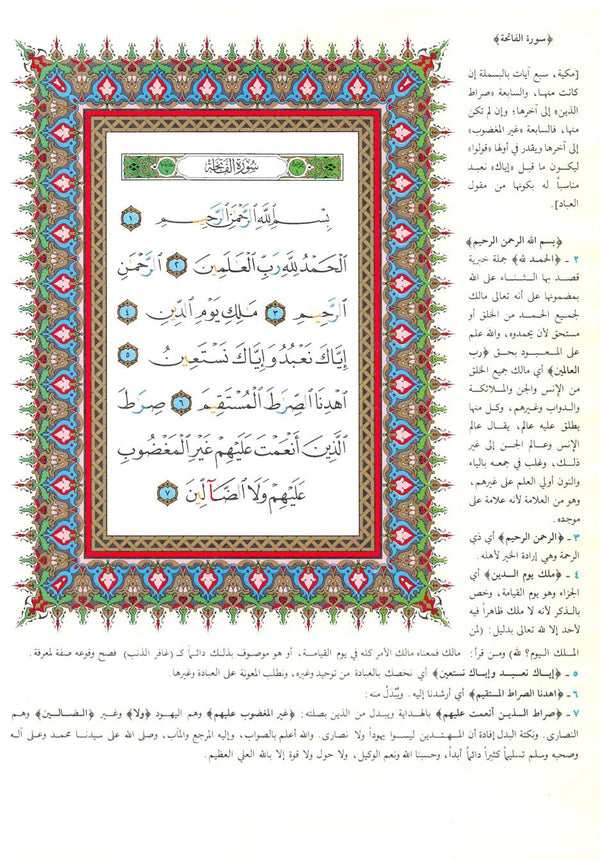 ﴿سورة الفاتحة﴾
[مكية، سبع آيات بالبسملة إن
كانت منها، والسابعة «صراط
الذين» إلى آخرها؛ وإن لم تكن
منها، فالسابعة «غير المغضوب»
إلى آخرها ويقدر في أولها «قولوا»
ليكون ما قبل «إياك نعبد
مناسباً له بكونها من مقول
العباد].
سورة الفاتحة
بِسْمِ ٱللَّهِ ٱلرَّحْمَٰنِ ٱلرَّحِيمِ ١
ٱلْحَمْدُ لِلَّهِ رَبِّ ٱلْعَٰلَمِينَ ٢ ٱلرَّحْمَٰنِ
ٱلرَّحِيمِ ٣ مَٰلِكِ يَوْمِ ٱلدِّينِ ٤
إِيَّاكَ نَعْبُدُ وَإِيَّاكَ نَسْتَعِينُ ٥
ٱهْدِنَا ٱلصِّرَٰطَ ٱلْمُسْتَقِيمَ ٦ صِرَٰطَ
ٱلَّذِينَ أَنْعَمْتَ عَلَيْهِمْ غَيْرِ ٱلْمَغْضُوبِ
عَلَيْهِمْ وَلَا ٱلضَّآلِّينَ ٧
﴿بسم الله الرحمن الرحيم﴾
٢ - ﴿الحمد لله﴾ جملة خبرية
قصد بها الثناء على الله
بمضمونها على أنه تعالى مالك
لجميع الحمد من الخلق أو
مستحق لأن يحمدوه، والله علم
على المعبود بحق ﴿رب
العالمين﴾ أي مالك جميع الخلق
من الإنس والجن والملائكة
والدواب وغيرهم، وكل منها
يطلق عليه عالم، يقال عالم
الإنس وعالم الجن إلى غير
ذلك، وغلب في جمعه بالياء
والنون أولي العلم على غيرهم،
وهو من العلامة لأنه علامة على
موجده.
٣ - ﴿الرحمن الرحيم﴾ أي ذي
الرحمة وهي إرادة الخير لأهله.
٤ - ﴿ملك يوم الدين﴾ أي
الجزاء وهو يوم القيامة، وخص
بالذكر لأنه لا ملك ظاهراً فيه
لأحد إلا لله تعالى بدليل: (لمن
الملك اليوم؟ لله) ومن قرأ: مالك فمعناه مالك الأمر كله في يوم القيامة، أو هو موصوف بذلك دائماً كـ (غافر الذنب) فصح وقوعه صفة لمعرفة.
٥ - ﴿إياك نعبد وإياك نستعين﴾ أي نخصك بالعبادة من توحيد وغيره، ونطلب المعونة على العبادة وغيرها.
٦ - ﴿اهدنا الصراط المستقيم﴾ أي أرشدنا إليه. ويُبْدَلُ منه:
٧ - ﴿صراط الذين أنعمت عليهم﴾ بالهداية ويبدل من الذين بصلته: ﴿غير المغضوب عليهم﴾ وهم اليهود ﴿ولا﴾ وغير ﴿الضالين﴾ وهم
النصارى. ونكتة البدل إفادة أن المهتدين ليسوا يهوداً ولا نصارى. والله أعلم بالصواب، وإليه المرجع والمآب، وصلى الله على سيدنا محمد وعلى آله
وصحبه وسلم تسليماً كثيراً دائماً أبداً، وحسبنا الله ونعم الوكيل، ولا حول ولا قوة إلا بالله العلي العظيم.